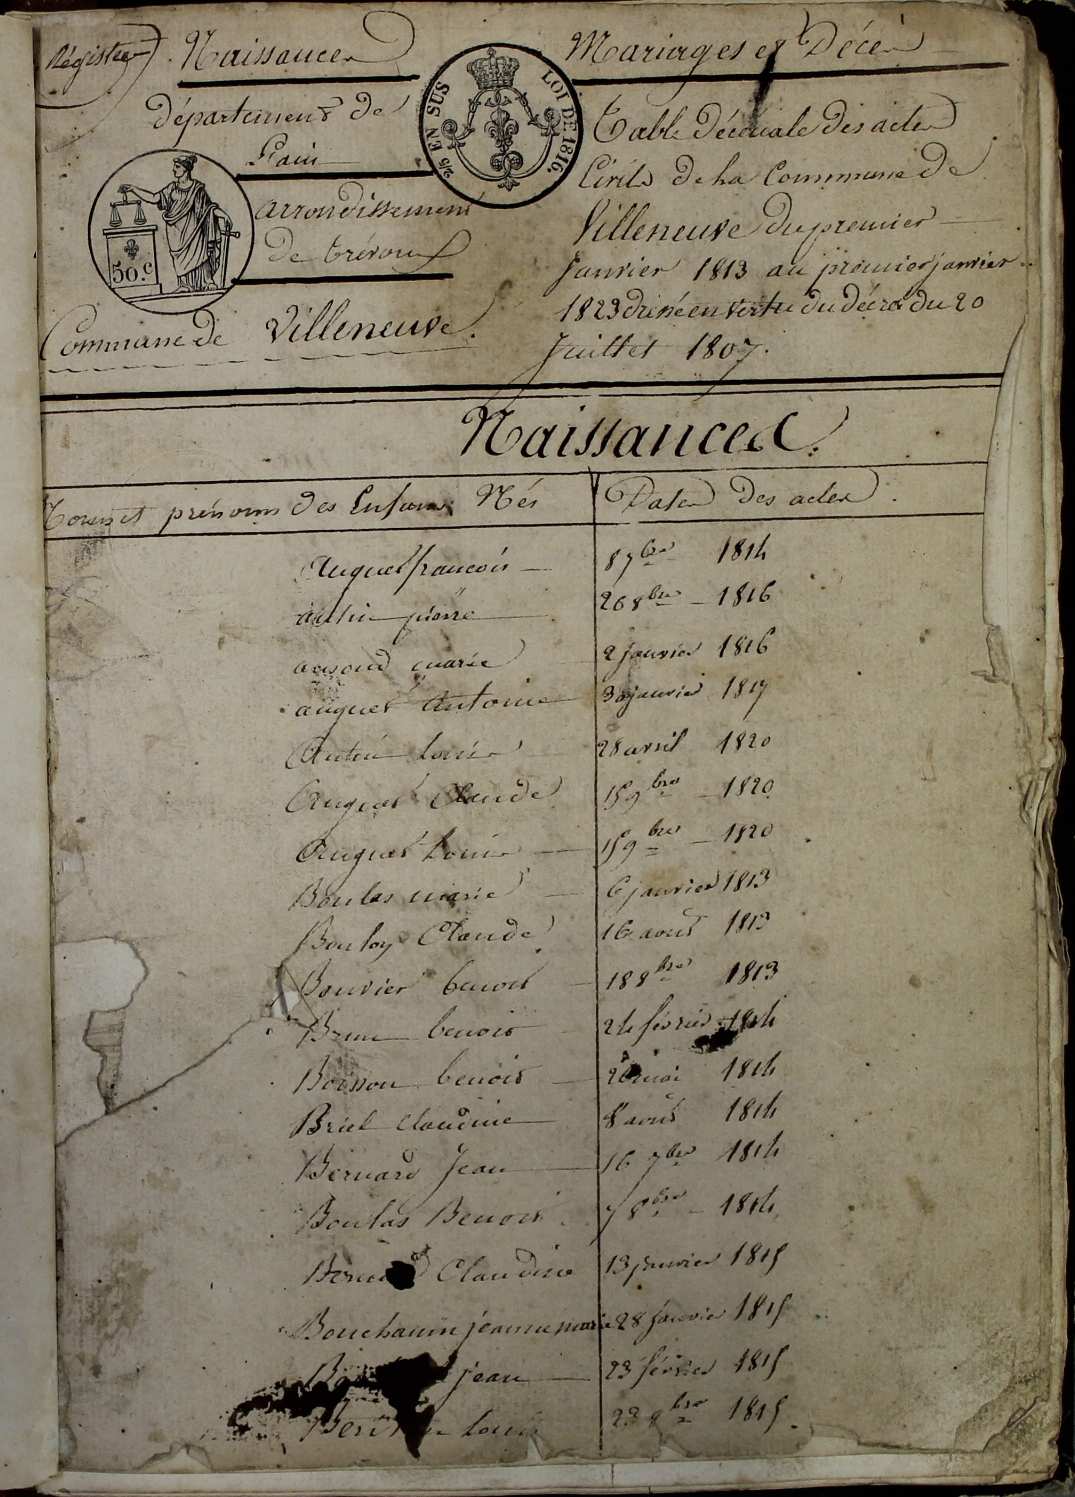 Régistre Naissances Mariages et Décès
Département de
l'ain
Arrondissement
De trévoux
Commune de Villeneuve.
2/5 EN SUS LOI DE 1816.
50.c
Table Décénale Des actes
Civils de La Commune de
Villeneuve du premier
Janvier 1813 au premier janvier
1823 drésé en vertu du Décrêt du 20
Juillet 1807.
Naissances.
Noms et prénoms Des Enfans Nés Dates des actes.
Auguet francois 8 7bre 1814
autin pierre 26 8bre 1816
marie 2 janvier 1816
auguet Antoine 30 janvier 1817
Autin Louis 28 avril 1820
Auguet Claude 15 9bre 1820
Auguet Louis 15 9bre 1820
Boulas marie 6 janvier 1813
Bouloy Claude 16 aout 1813
Bouvier benoit 18 8bre 1813
Brun benoit 24 février 1814
Boisson benoit 20 mai 1814
Briel claudine 8 aout 1814
Bernard Jean 16 7bre 1814
Boulas Benoit 7 8bre 1814
Claudine 13 janvier 1815
Bouchanin jeanne marie 28 janvier 1815
jean 23 février 1815
Louis 23 8bre 1815